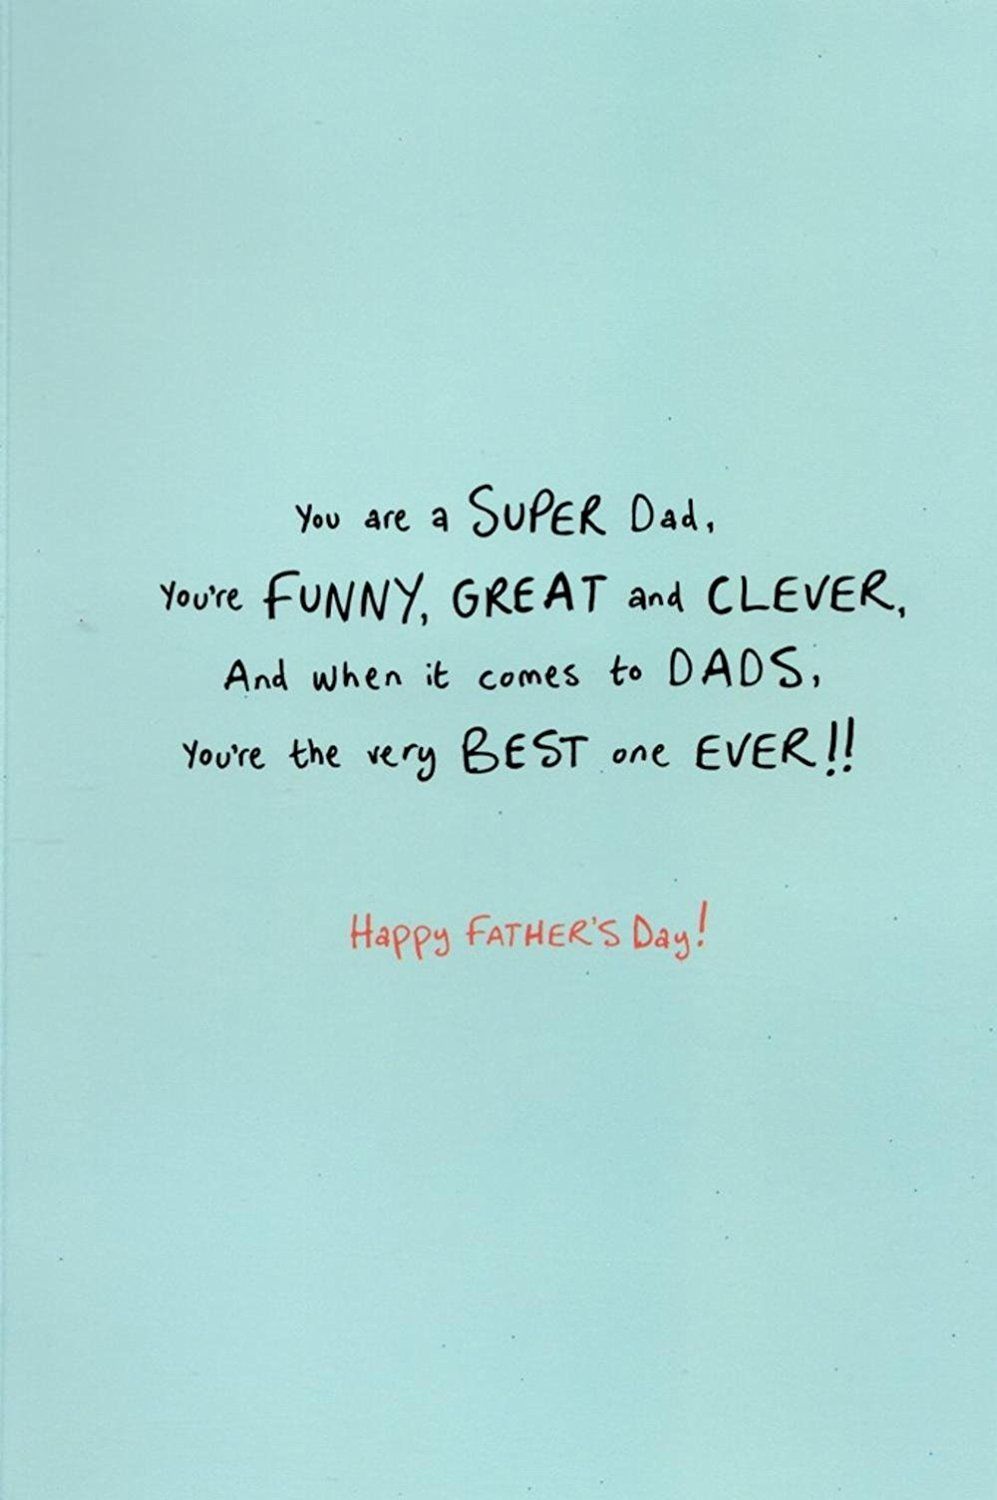 You are a SUPER Dad,
You're FUNNY, GREAT and CLEVER,
And when it comes to DADS,
You're the very BEST one EVER!!
Happy FATHER'S Day!